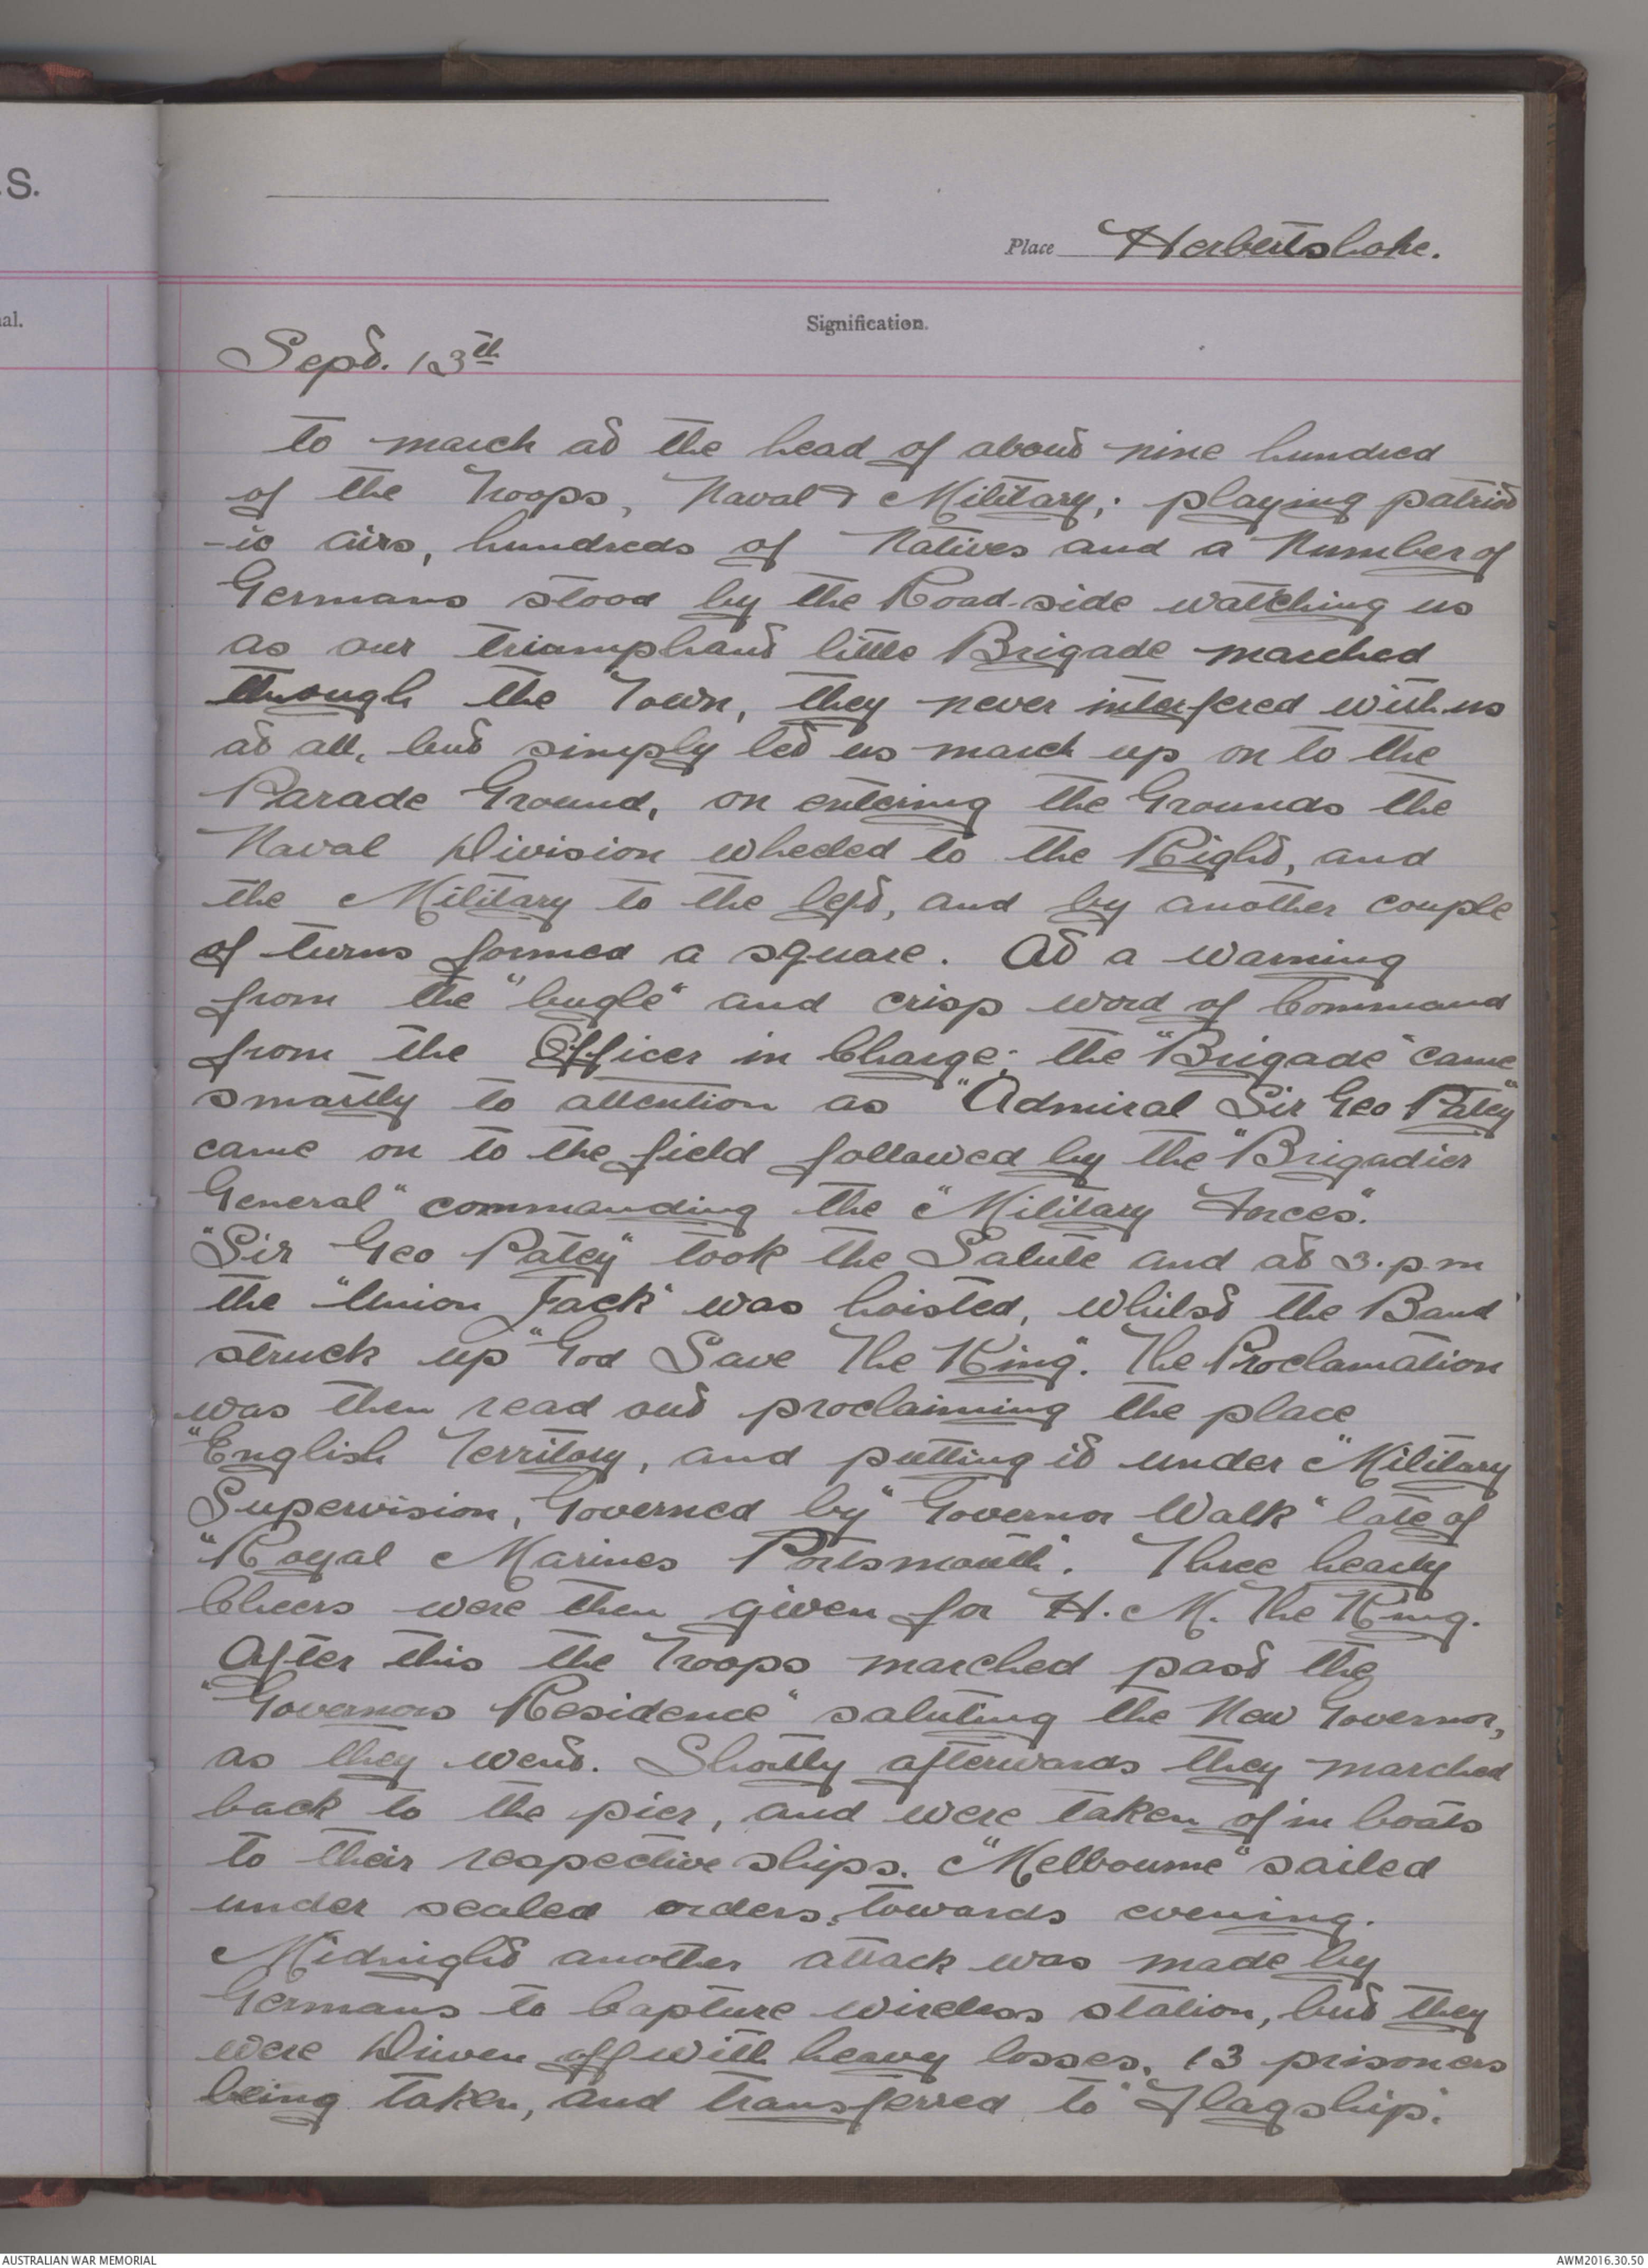 .S.
Place Herbertshohe.
al.
Signification.
Sept. 13th
to march at the head of about nine hundred
of the Troops, Naval & Military; playing patriot
-ic airs, hundreds of Natives and a Number of
Germans stood by the Road-side watching us
as our triumphant little Brigade marched
through the Town, they never interfered with us
at all, but simply let us march up on to the
Parade Ground, on entering the Grounds the
Naval Division wheeled to the Right, and
the Military to the left, and by another couple
of turns formed a square. At a warning
from the "bugle" and crisp word of Command
from the Officer in Charge; the "Brigade" came
smartly to attention as "Admiral Sir Geo Patey"
came on to the field followed by the "Brigadier
General" commanding the "Military Forces".
"Sir Geo Patey" took the Salute and at 3.p.m
the "Union Jack" was hoisted, whilst the Band
struck up "God Save The King". The Proclamation
was then read out proclaiming the place
"English Territory, and putting it under "Military
Supervision, Governed by "Governor Walk" late of
"Royal Marines Portsmouth". Three hearty
Cheers were then given for H. M. The King.
After this the Troops marched past the
"Governors Residence" saluting the New Governor,
as they went. Shortly afterwards they marched
back to the pier, and were taken of in boats
to their respective ships. "Melbourne" sailed
under sealed orders, towards evening.
Midnight another attack was made by
Germans to Capture wireless station, but they
were Driven off with heavy losses. 13 prisoners
being taken, and transferred to "Flagship".
AUSTRALIAN WAR MEMORIAL
AWM2016.30.50